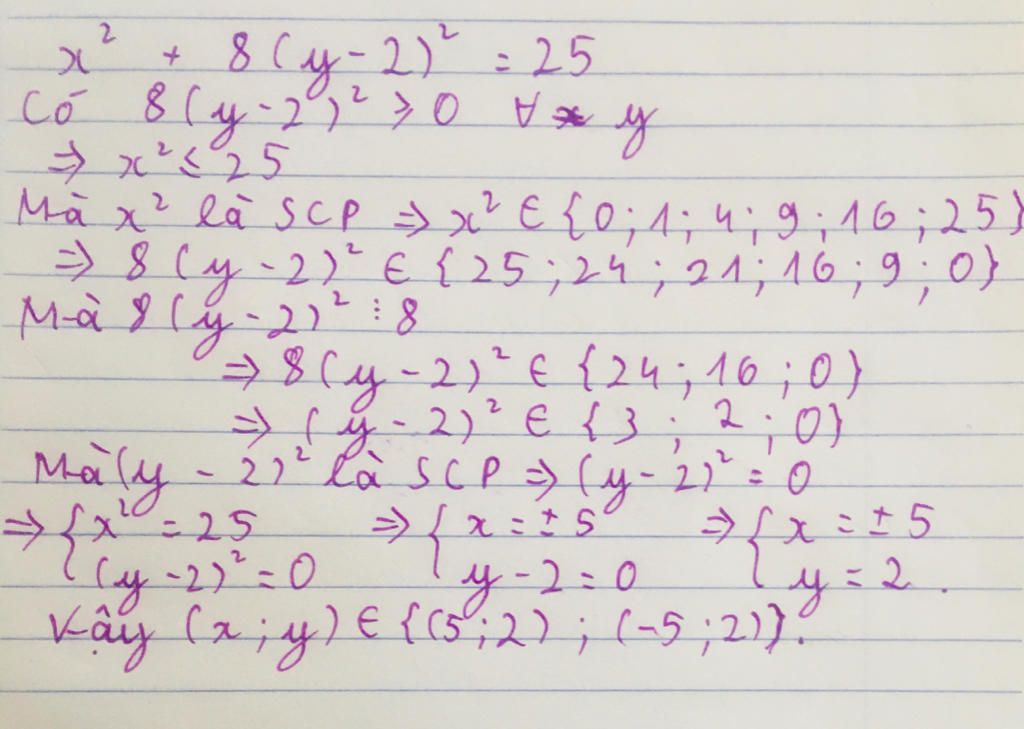 x² + 8(y-2)² = 25
Có 8(y-2)² ≥ 0 ∀ y
⇒ x² ≤ 25
Mà x² là SCP ⇒ x² ∈ {0;1;4;9;16;25}
⇒ 8(y-2)² ∈ {25;24;21;16;9;0}
Mà 8(y-2)² ⋮ 8
⇒ 8(y-2)² ∈ {24;16;0}
⇒ (y-2)² ∈ {3;2;0}
Mà (y-2)² là SCP ⇒ (y-2)² = 0
⇒ { x² = 25 ⇒ { x = ±5 ⇒ { x = ±5
(y-2)² = 0 y-2 = 0 y = 2.
Vậy (x;y) ∈ {(5;2);(-5;2)}.